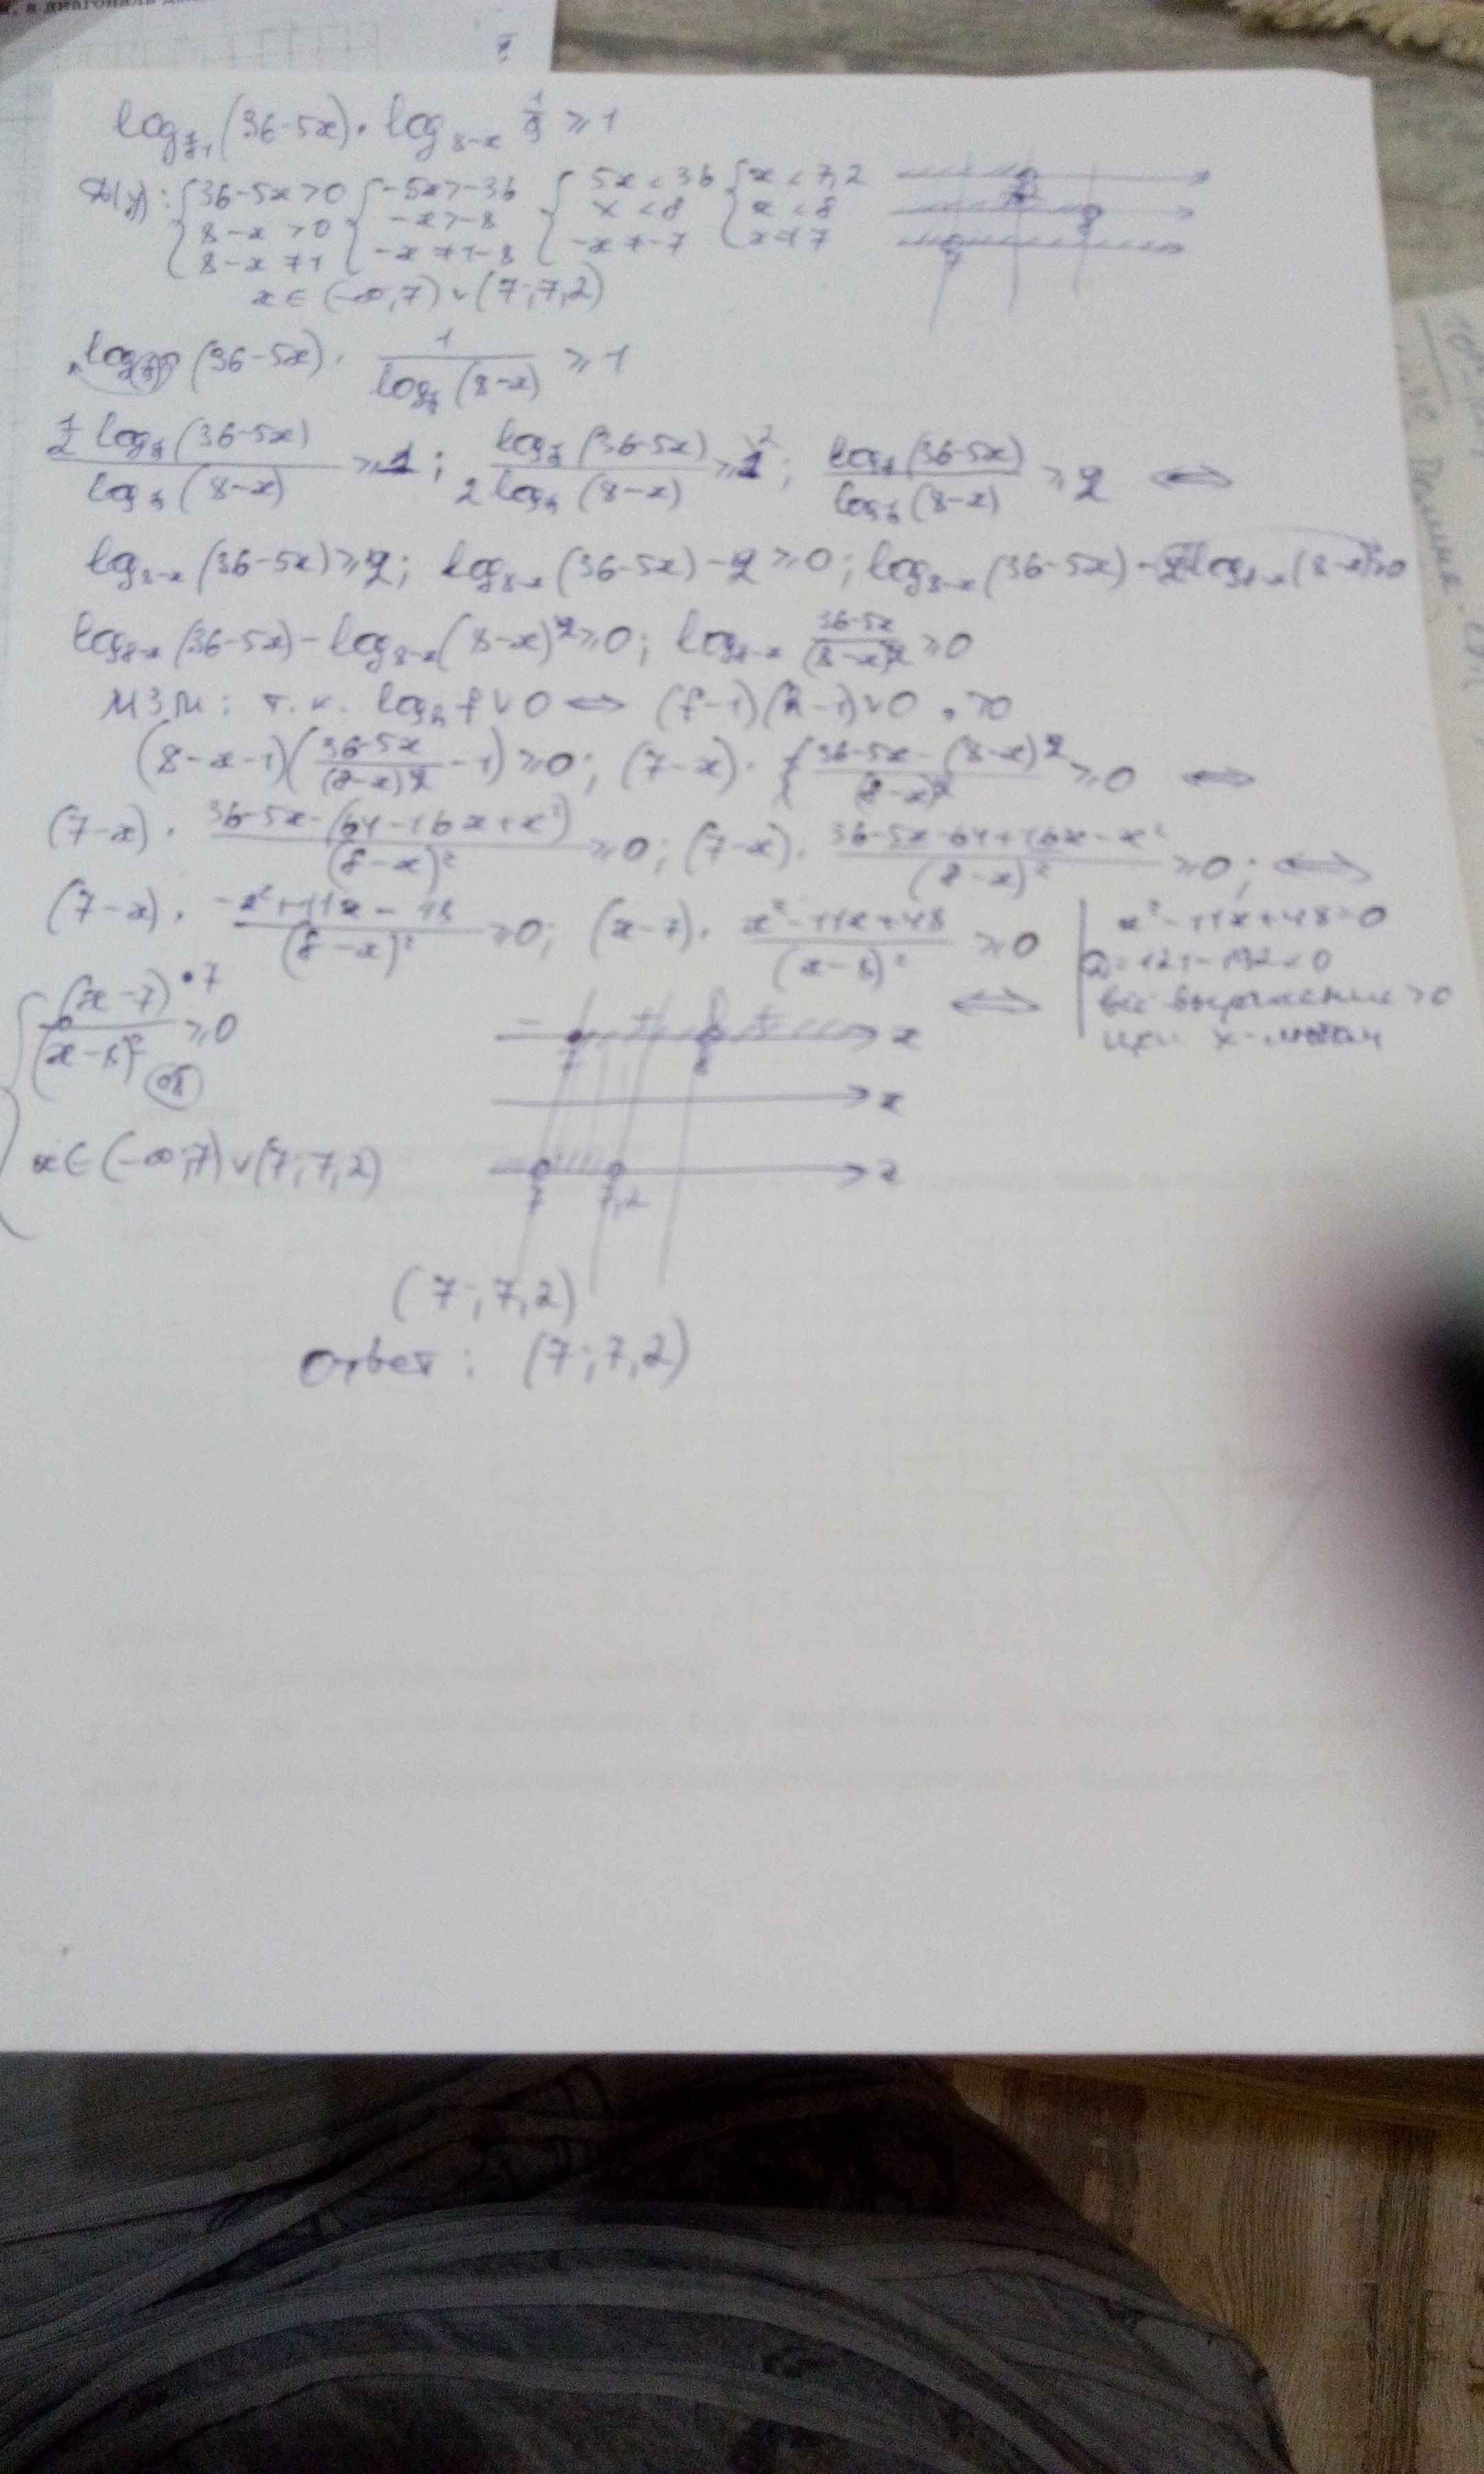 и, а диагональ
log_{1/81}(36-5x)·log_{8-x} 1/9 ≥ 1
D(y): { 36-5x>0 { -5x>-36 { 5x<36 { x<7,2
8-x>0 -x>-8 x<8 x<8
8-x≠1 -x≠1-8 -x≠-7 x≠7
x∈(-∞,7)∪(7;7,2)
(36-5x)· 1/(log_{1/9}(8-x)) ≥ 1
(1/2 log_{1/9}(36-5x))/(log_{1/9}(8-x)) ≥ 1; (log_{1/9}(36-5x))/(2 log_{1/9}(8-x)) ≥ 1; (log_{1/9}(36-5x))/(log_{1/9}(8-x)) ≥ 2 ⇔
log_{8-x}(36-5x) ≥ 2; log_{8-x}(36-5x)-2 ≥ 0; log_{8-x}(36-5x)-2log_{8-x}(8-x) ≥ 0
log_{8-x}(36-5x)-log_{8-x}(8-x)^2 ≥ 0; log_{8-x} (36-5x)/(8-x)^2 ≥ 0
МЗМ: т.к. log_h f ∨ 0 ⇔ (f-1)(h-1) ∨ 0, то
(8-x-1)((36-5x)/(8-x)^2 - 1) ≥ 0; (7-x)· (36-5x-(8-x)^2)/(8-x)^2 ≥ 0 ⇔
(7-x)· (36-5x-(64-16x+x^2))/(8-x)^2 ≥ 0; (7-x)· (36-5x-64+16x-x^2)/(8-x)^2 ≥ 0; ⇔
(7-x)· (-x^2+11x-48)/(8-x)^2 ≥ 0; (x-7)· (x^2-11x+48)/(x-8)^2 ≥ 0 | x^2-11x+48=0
D=121-192<0
все выражение >0
при x-любом
⇔
{ (x-7)/(x-8)^2 ≥ 0
•7
- + + x
7 8
x
x∈(-∞;7)∪(7;7,2)
x
7 7,2
(7;7,2)
Ответ: (7;7,2)